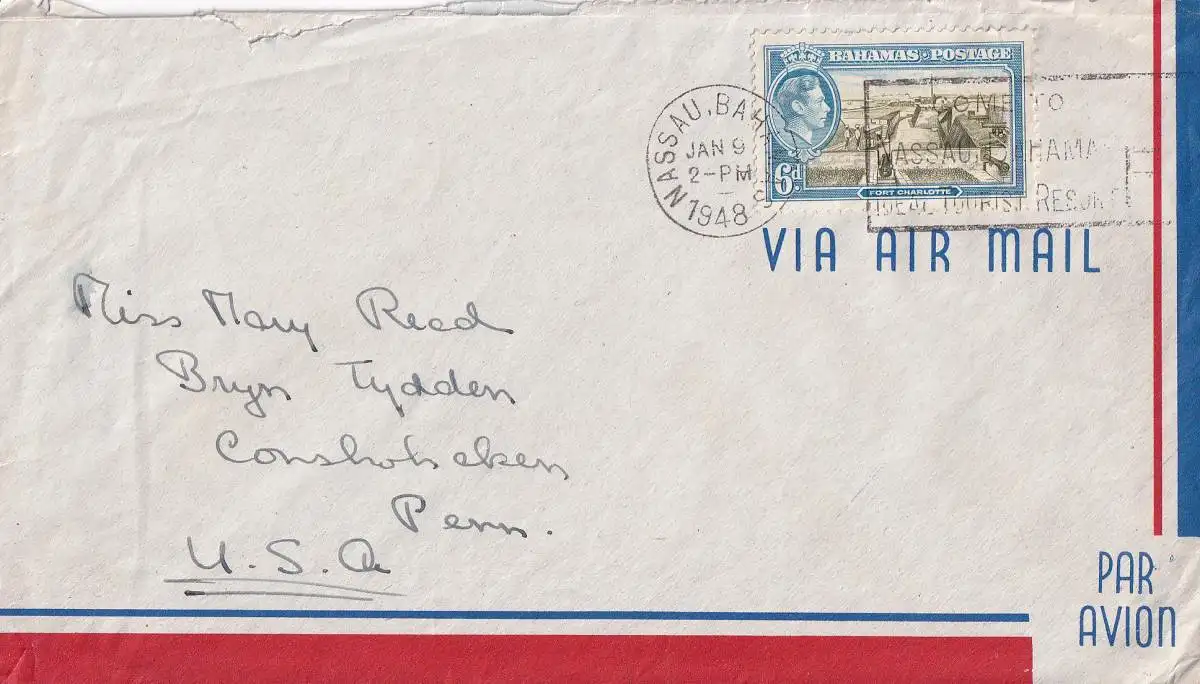 BAHAMAS · POSTAGE
6d
FORT CHARLOTTE
NASSAU, BAH
JAN 9
2-PM
1948
COME TO
NASSAU, BAHAMA
IDEAL TOURIST RESORT
VIA AIR MAIL
Miss Mary Read
Bryn Tydden
Conshohocken
Penn.
U.S.A
PAR
AVION